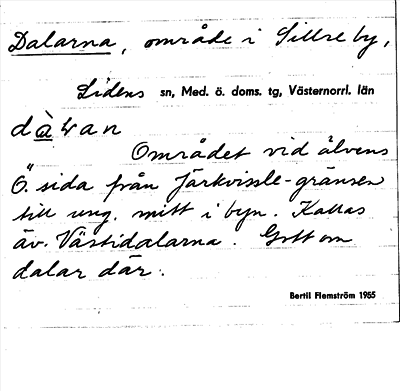 Dalarna, område i Sillre by,
Lidens sn, Med. ö. doms. tg, Västernorrl. län
dàɬan
Området vid älvens
Ö. sida från Järkvissle-gränsen
till ung. mitt i byn. Kallas
äv. Västidalarna. Gott om
dalar där.
Bertil Flemström 1965